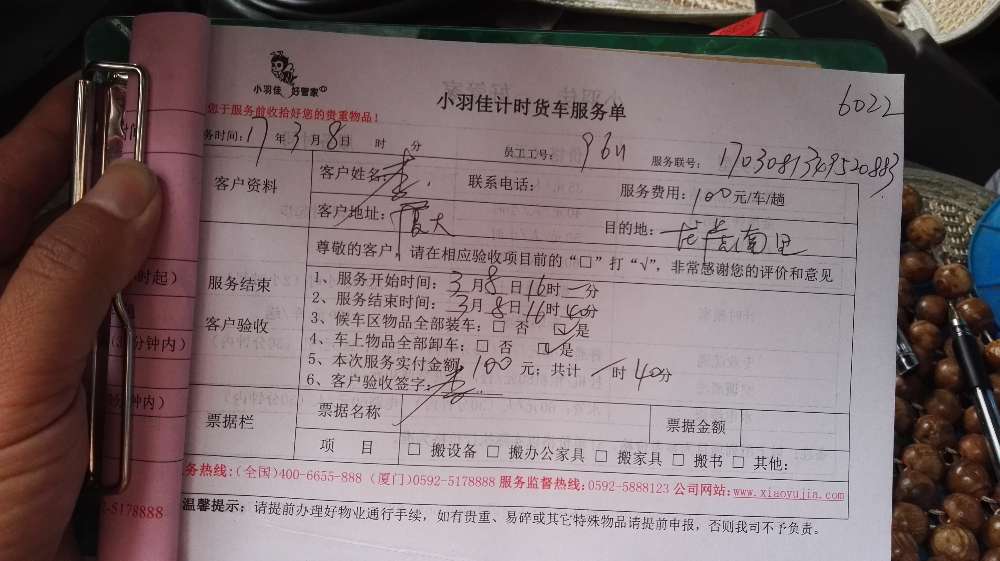 小羽佳 好管家
小羽佳计时货车服务单
6022
您于服务前收拾好您的贵重物品！
务时间：17年3月8日 时 分 员工工号： 服务联号：1703081349520883
客户资料
客户姓名：李. 联系电话： 服务费用：100元/车/趟
客户地址：厦大 目的地：
服务结束
客户验收
尊敬的客户，请在相应验收项目前的“□”打“√”，非常感谢您的评价和意见
1、服务开始时间：3月8日16时一分
2、服务结束时间：3月8日16时40分
3、候车区物品全部装车：□ 否 ☑ 是
4、车上物品全部卸车：□ 否 ☑ 是
5、本次服务实付金额：100元；共计 一时40分
6、客户验收签字：李
票据栏
票据名称 票据金额
项 目 □ 搬设备 □ 搬办公家具 □ 搬家具 □ 搬书 □ 其他：
务热线：(全国)400-6655-888 (厦门)0592-5178888 服务监督热线：0592-5888123 公司网站：www.xiaoyujia.com
温馨提示：请提前办理好物业通行手续，如有贵重、易碎或其它特殊物品请提前申报，否则我司不予负责。
时起）
分钟内）
分钟内）
-5178888